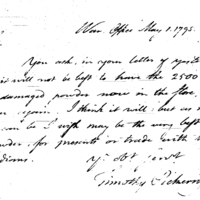 War Office May 1. 1795.
You ask, in your letter of yest
it will not be best to have the 2500
damaged powder now in the
again. I think it will: but as
can be I wish may be the very best
for presents or trade with
dians.
yr obt servt
Timothy Pickering